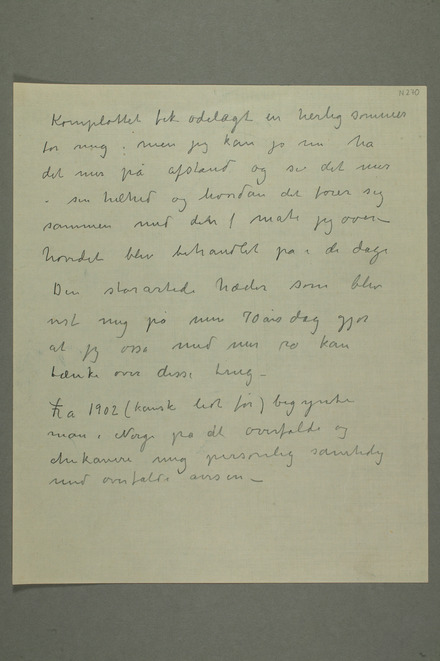 N 270
Komplottet fik ødelagt en herlig sommer
for mig; men jeg kan jo nu ha
det mer på afstand og se det mer
i sin helhed og hvordan det føier sig
sammen med den måte jeg over-
hovedet blev behandlet på i de dage
Den storartede hæder som blev
vist mig på min 70 års dag gjør
at jeg osså med mer ro kan
tænke over disse ting –
Fra 1902 (kanske lidt før) begynte
man i Norge på at overfalde og
chikanere mig personlig samtidig
med overfaldt